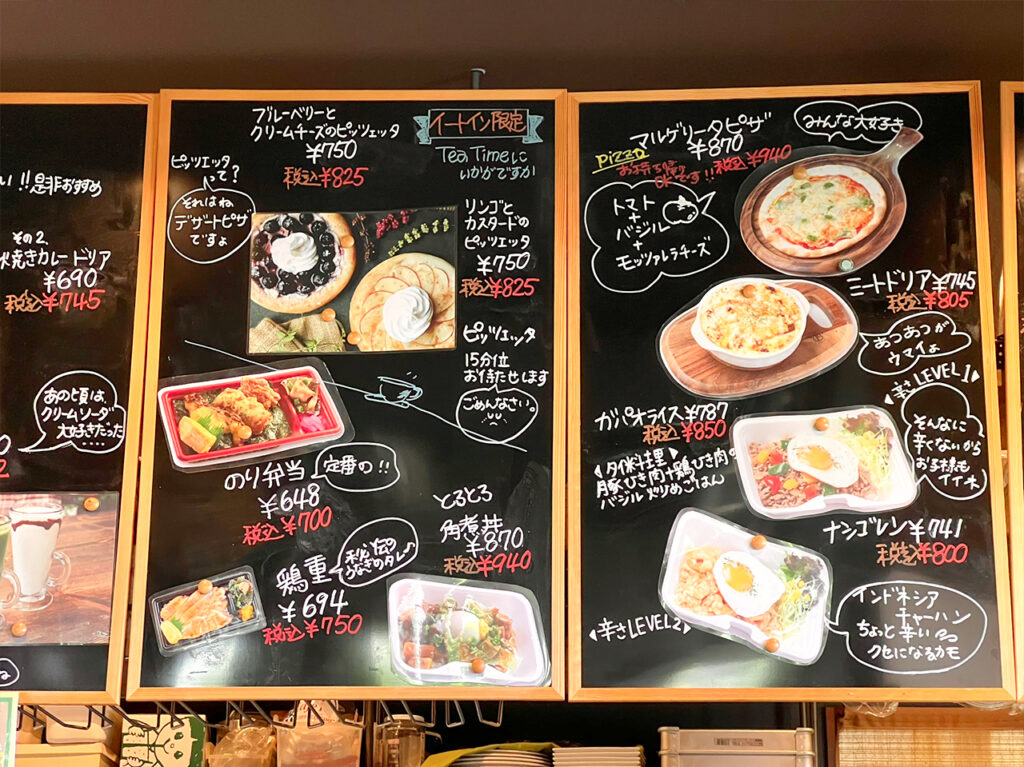 い!!是非おすすめ
その2
焼きカレードリア
¥690
税込¥745
あの頃は、
クリームソーダ
大好きだった
....
ブルーベリーと
クリームチーズのピッツェッタ
¥750
税込¥825
イートイン限定
Tea Timeに
いかがですか
ピッツェッタ
って?
それはね
デザートピザ
ですよ
リンゴと
カスタードの
ピッツェッタ
¥750
税込¥825
ピッツェッタ
15分位
お待たせします
ごめんなさい。
のり弁当
¥648
税込¥700
定番の!!
とろとろ
角煮丼
¥870
税込¥940
鶏重
¥694
税込¥750
秘伝の
うなぎのタレ♪
マルゲリータピザ
¥870
税込¥940
みんな大好き
PIZZA
お持ち帰り
OKです!!
トマト
+
バジル
+
モッツァレラチーズ
ミートドリア¥745
税込¥805
あつあつが
ウマイよ
ガパオライス¥787
税込¥850
タイ料理
豚ひき肉+鶏ひき肉の
バジル炒めごはん
辛さLEVEL1
そんなに
辛くないから
お子様も
イイネ
ナシゴレン¥741
税込¥800
辛さLEVEL2
インドネシア
チャーハン
ちょっと辛い
クセになるカモ